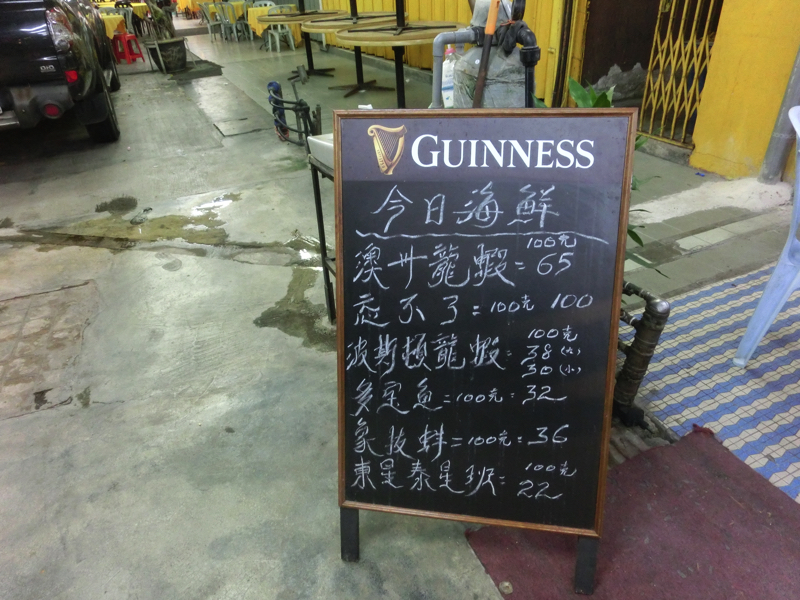 GUINNESS
今日海鮮
澳卅龍蝦 = 100克 65
忘不了 = 100克 100
波斯頓龍蝦 = 100克 38 (大)
30 (小)
多宝魚 = 100克 = 32
象拔蚌 = 100克 = 36
東星泰星班 = 100克 22